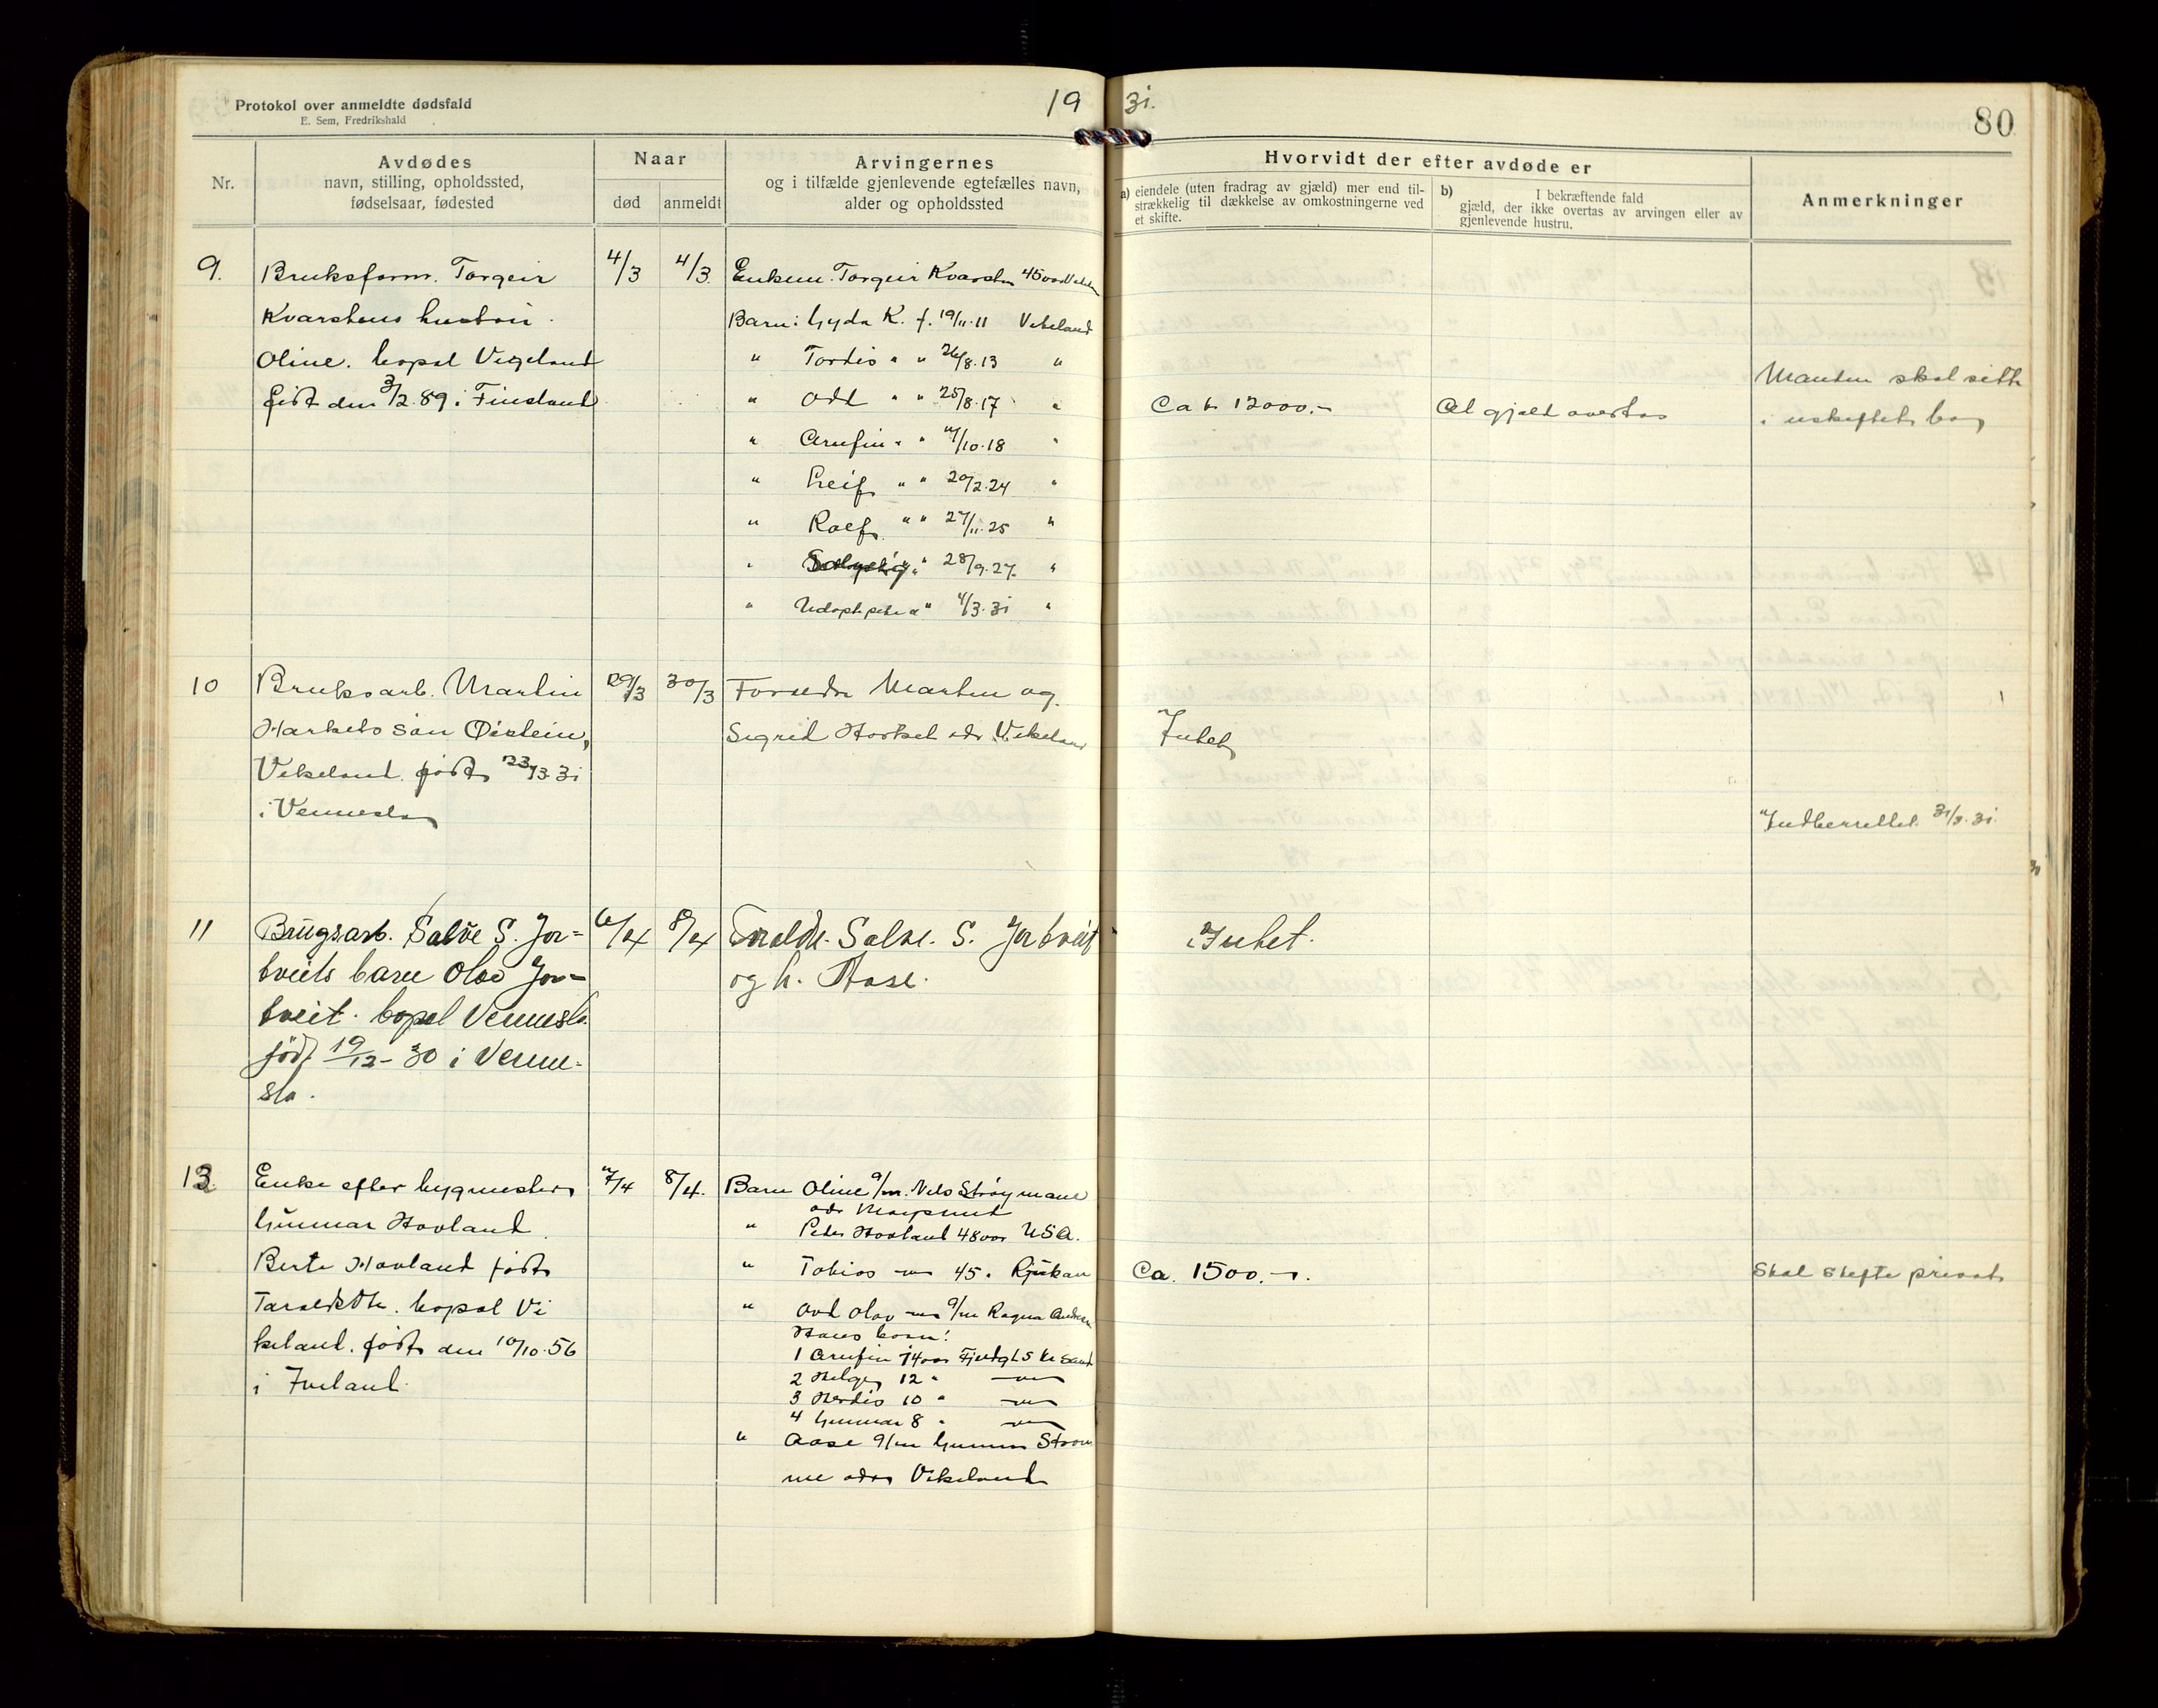 Protokol over anmeldte dødsfald
E. Sem, Fredrikshald
19 31.
80
Nr.
Avdødes
navn, stilling, opholdssted,
fødselsaar, fødested
Naar
død
anmeldt
Arvingernes
og i tilfælde gjenlevende egtefælles navn,
alder og opholdssted
Hvorvidt der efter avdøde er
a) eiendele (uten fradrag av gjæld) mer end til-
strækkelig til dækkelse av omkostningerne ved
et skifte.
b) I bekræftende fald
gjæld, der ikke overtas av arvingen eller av
gjenlevende hustru.
Anmerkninger
9.
Bruksform. Torgeir
Kvarstens hustru
Oline. bopal Vegeland
Født den 3/2.89 i Finsland
4/3
4/3
Enkem. Torgeir Kvarsten 45 aar
Barn: Gyda K. f. 19/11.11 Vikeland
" Tordis " " 26/8.13 "
" Odd " " 25/8.17 "
" Arnfin " " /10.18 "
" Leif " " 20/2.24 "
" Rolf " " 27/11.25 "
" " 28/9.27. "
" Udøpt " 4/3.31 "
Ca kr 12000.-
Al gjæld overtas
Manden skal sitte
i uskiftet bo
10
Bruksarb. Martin
Harkets søn Øistein,
Vikeland. født 23/3 31
i Vennesla
29/3
30/3
Foreldre Martin og
Sigrid Horket adr Vikeland
Intet
Indberettet 31/3.31.
11
Brugsarb. Salve S. Jor=
tveits barn Olav Jor=
tveit. bopal Vennesla.
født 19/12-30 i Venne-
sla.
6/4
8/4
Foreldr. Salve. S. Jortveit
og h. Aase.
Intet.
12
Enke efter bygmester
Gunnar Hovland
Berte Hovland født
Taraldsdtr. bopal Vi
keland. født den 10/10.56
i Iveland
7/4
8/4.
Barn Oline g/m. Nels Strøymane
adr
" Peder Hovland 48 aar USA.
" Tobias — 45 " Rjukan
" Avd Olav — g/m Ragna
Hans barn:
1 Arnfin 14 aar
2 Helge 12 " —
3 Herdis 10 " —
4 Gunnar 8 " —
" Aase g/m Gunnar Strøm
me adr Vikeland
Ca. 1500.-
Skal skifte privat